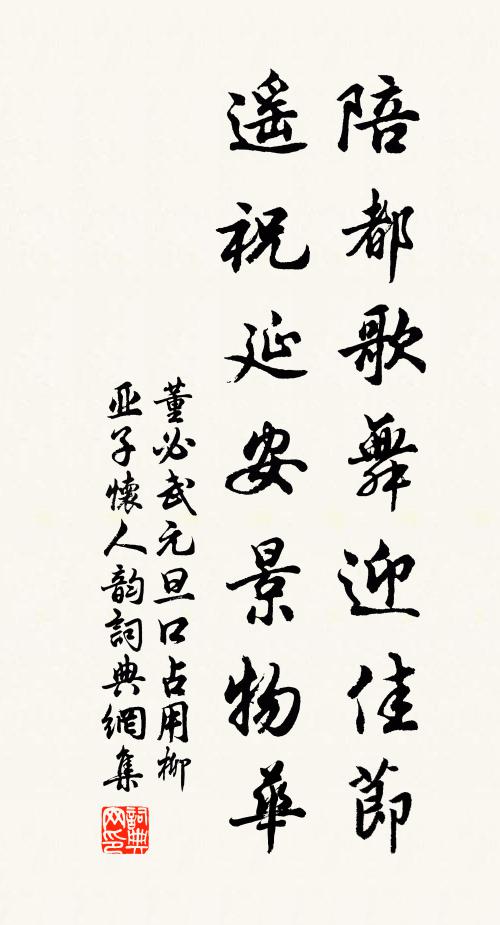 陪都歌舞迎佳節
遥祝延安景物華
董必武元旦口占用柳
亚子懷人韵詞典網集
詞典网印